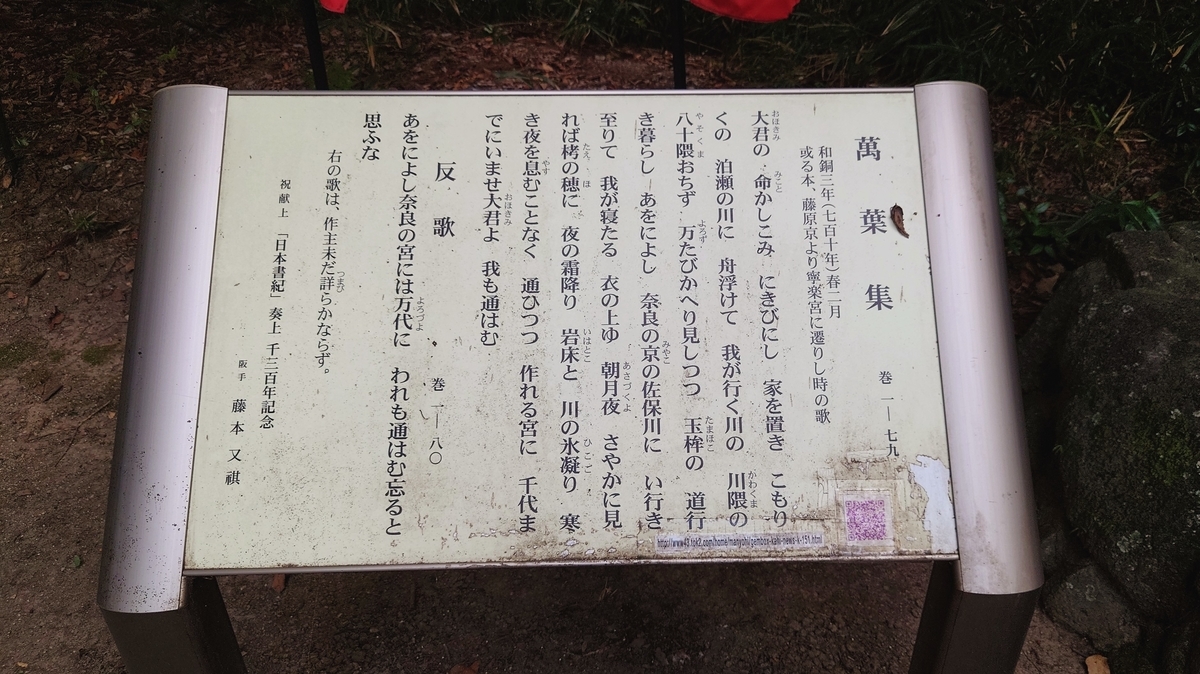 萬葉集 巻一―七九
和銅三年（七百十年）春二月
或る本、藤原京より寧楽宮に遷りし時の歌
大君の 命かしこみ にきびにし 家を置き こもり
くの 泊瀬の川に 舟浮けて 我が行く川の 川隈の
八十隈おちず 万たびかへり見しつつ 玉桙の 道行
き暮らし あをによし 奈良の京の佐保川に い行き
至りて 我が寝たる 衣の上ゆ 朝月夜 さやかに見
れば栲の穂に 夜の霜降り 岩床と 川の氷凝り 寒
き夜を息むことなく 通ひつつ 作れる宮に 千代ま
でにいませ大君よ 我も通はむ
反歌 巻一―八〇
あをによし奈良の宮には万代に われも通はむ忘ると
思ふな
右の歌は、作主未だ詳らかならず。
祝献上 「日本書紀」奏上 千三百年記念
阪手 藤本又祺